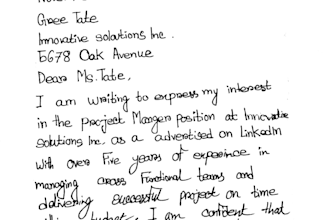 Gree Tate
Innovative solutions Inc.
5678 Oak Avenue
Dear Ms. Tate,
I am writing to express my interest
in the Project Manger position at Innovative
Solutions Inc. as a advertised on LinkedIn
With over Five years of experince in
managing cross Functional teams and
delivering successful project on time
budget, I am confident that